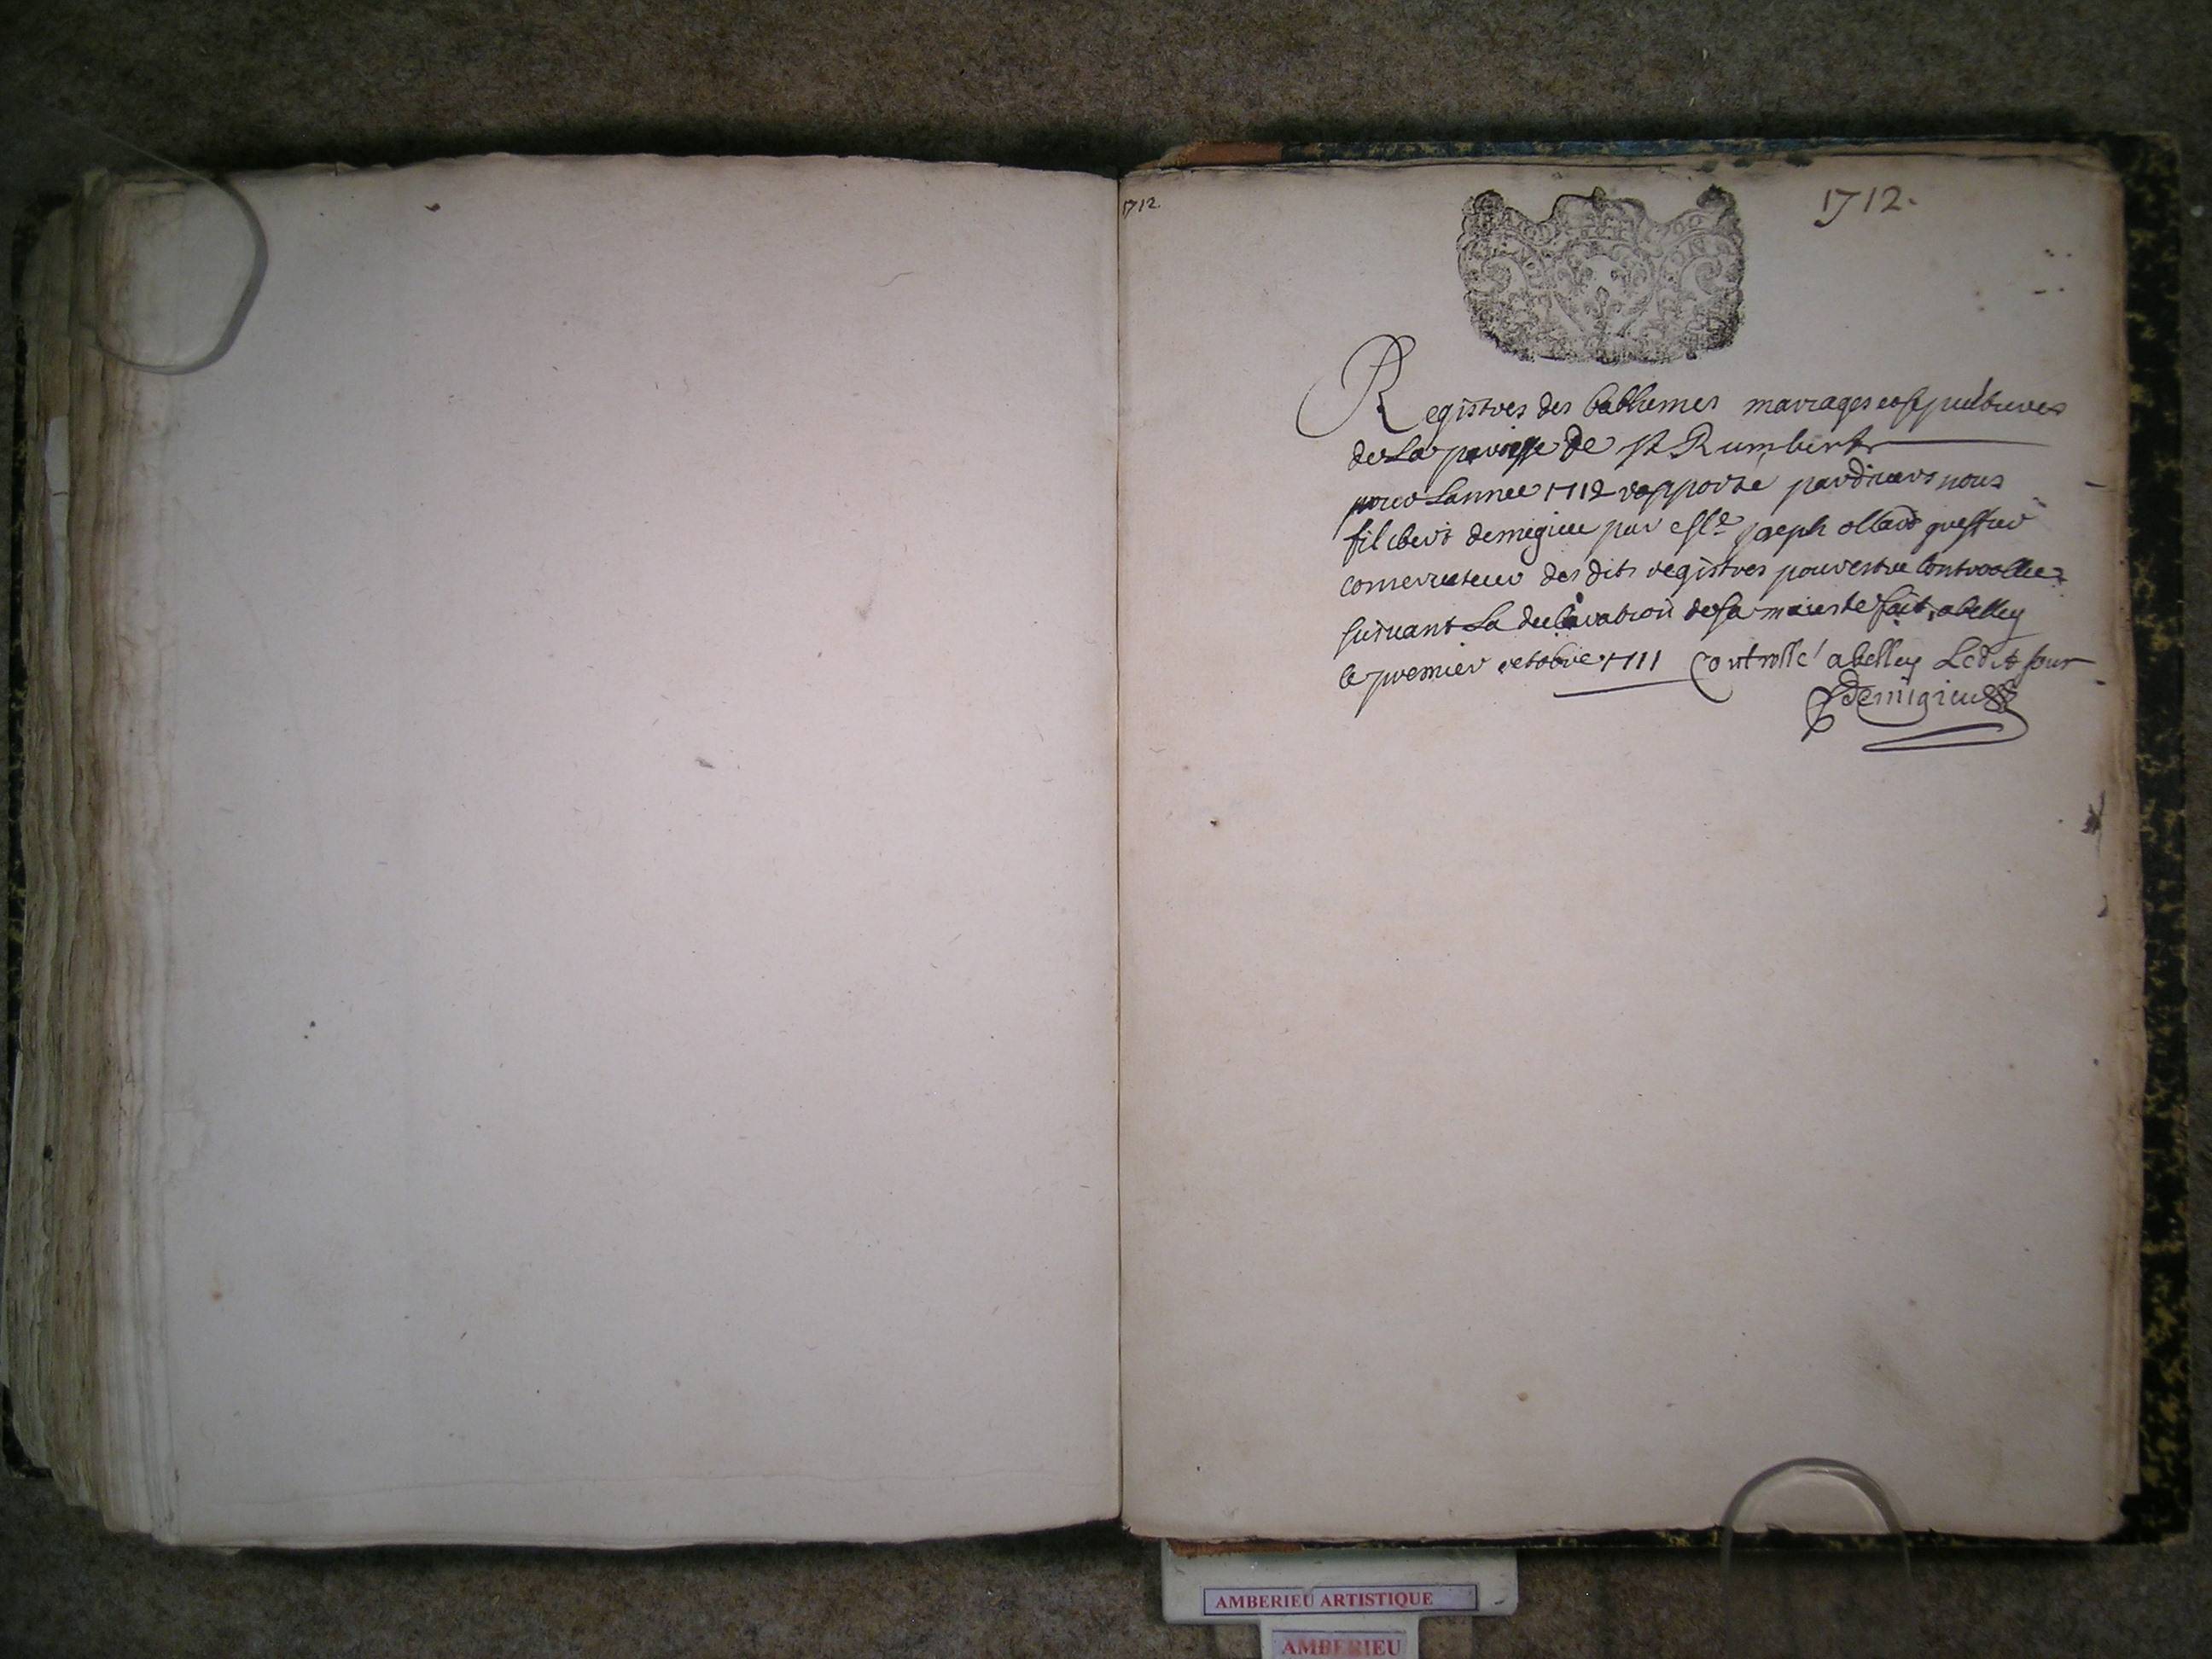 1712
1712.
Registres des babthemes mariages et sepultures
de La paroisse de St Rambert
pour Lannee 1712 rapporté pardevers nous
filibert demigieu par Joseph
conservateur des dits registres pour estre Controollez
suivant La declaration de sa majesté fait a belley
le premier octobre 1711 Controllé a belley Ledit jour
Demigieu
AMBERIEU ARTISTIQUE
AMBERIEU